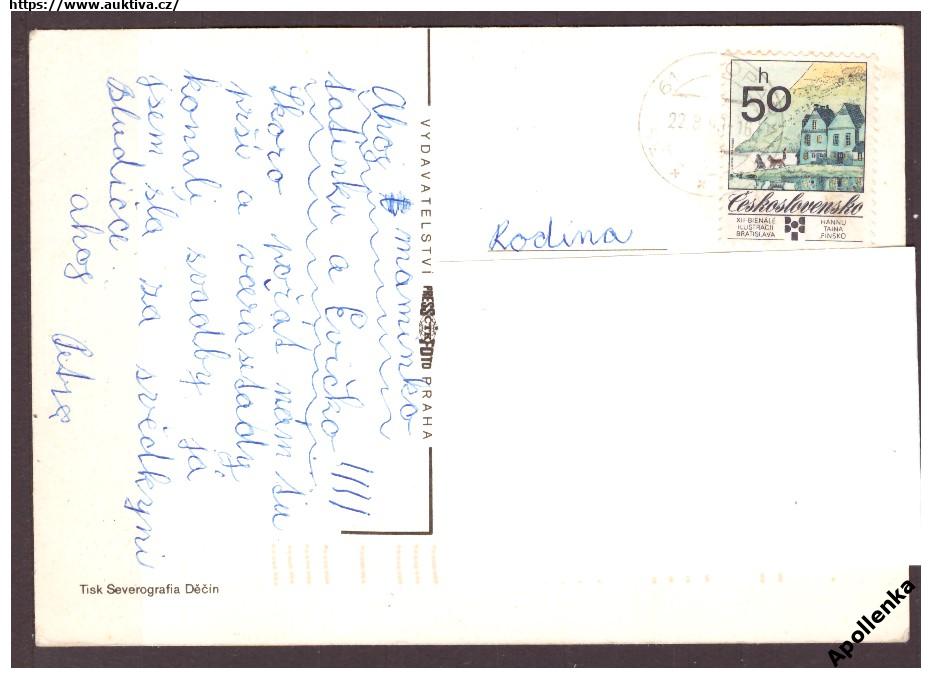 https://www.auktiva.cz/
Ahoj maminko
tatínku a Evičko!!!!
Skoro pořád nám tu
prší a včera se tady
konaly svadby já
jsem šla za svědkyni
Bludičce
ahoj Petra
VYDAVATELSTVÍ PRESSFOTO PRAHA
ČTK
Tisk Severografia Děčín
61
22.8.
16
50 h
Československo
XII BIENÁLE
ILUSTRACIÍ
BRATISLAVA
HANNU
TAINA
„FINSKO"
Rodina
Apollenka